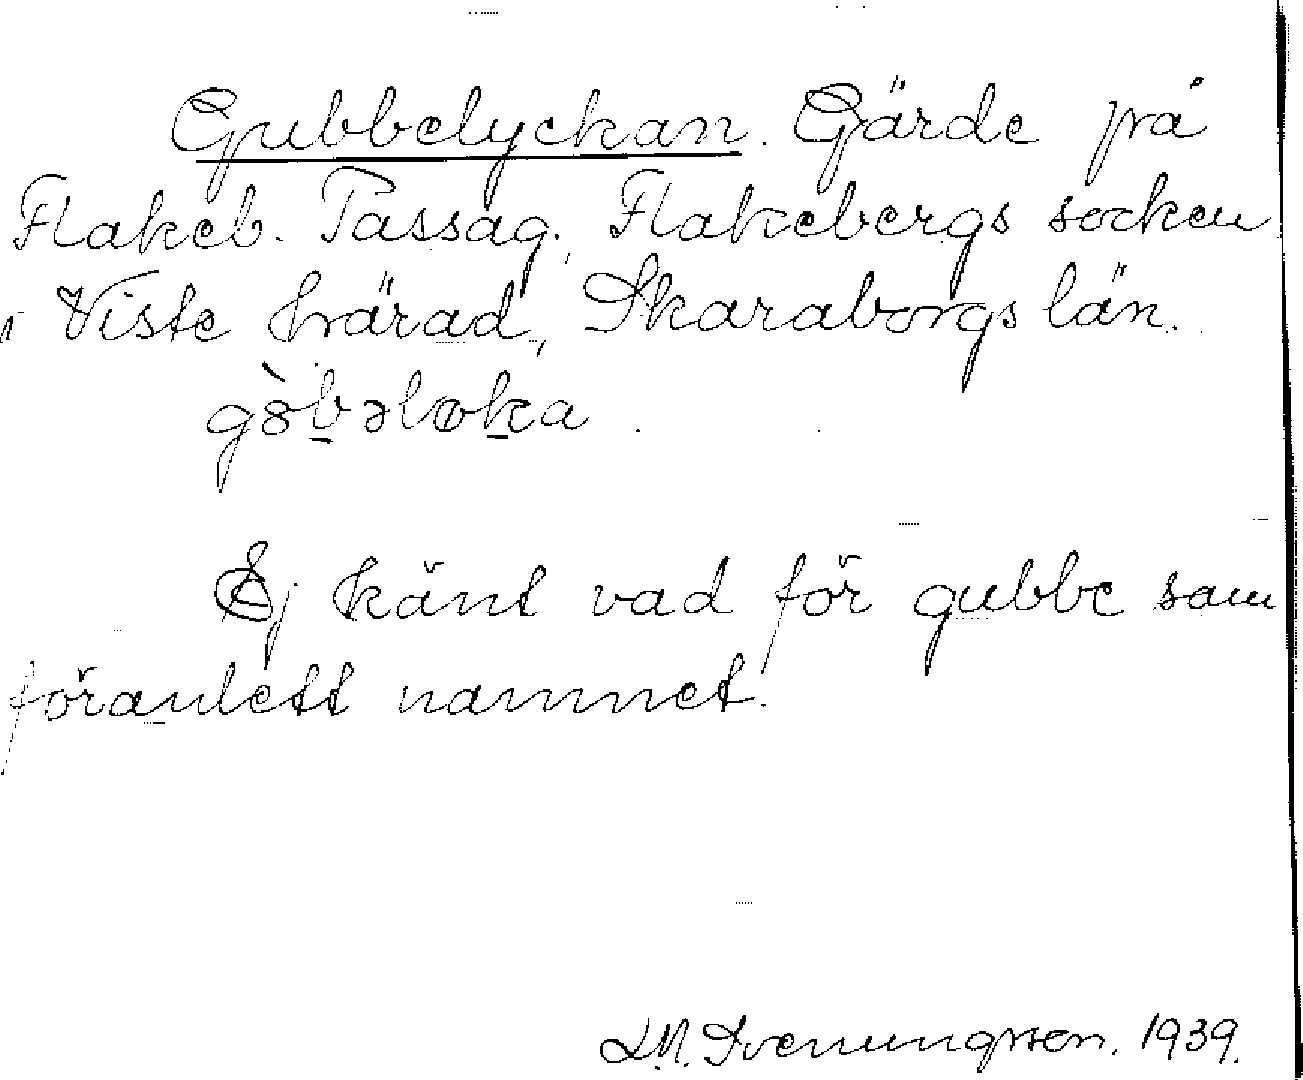 Gubbelyckan. Gärde på
Flakeb. Tassag., Flakebergs socken
i Viste härad, Skaraborgs län.
gòbəløka.
Ej känt vad för gubbe som
föranlett namnet.
L.M. Svenungsson. 1939.